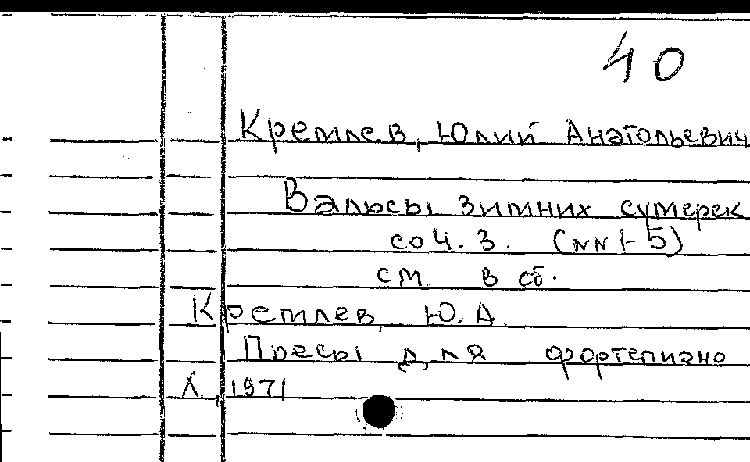 40
Кремлев, Юлий Анатольевич
Вальсы зимних сумерек
соч. 3. (NN 1-5)
см в сб.
Кремлев, Ю.А.
Пьесы для фортепиано
Л, 1971